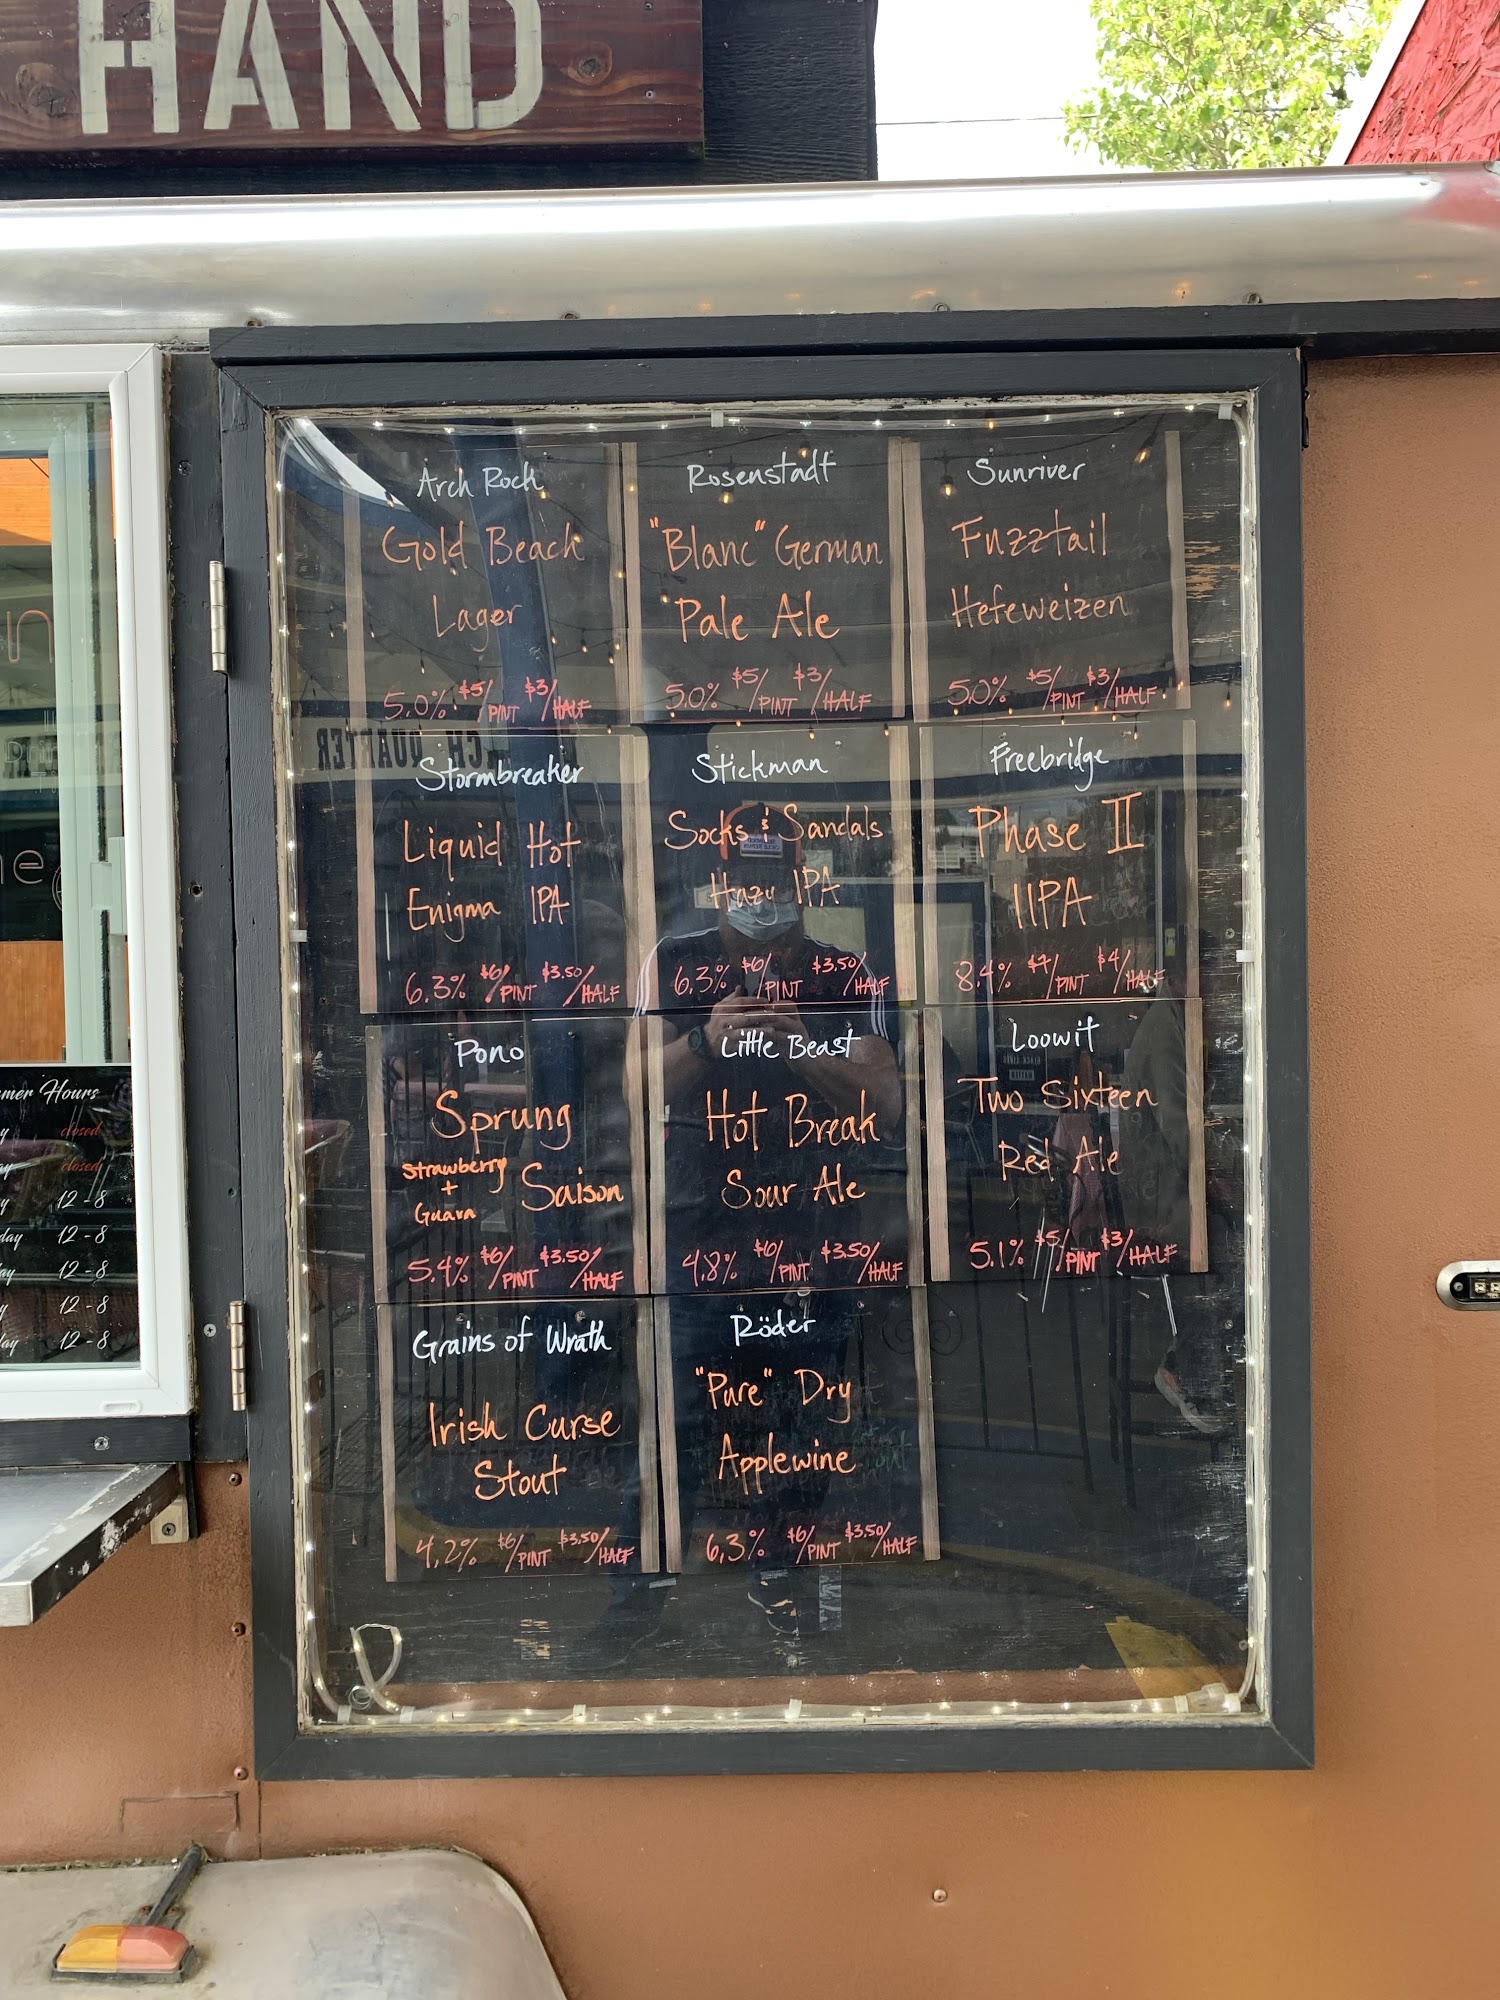 HAND
Arch Rock
Gold Beach
Lager
5.0% $5/PINT $3/HALF
Rosenstadt
"Blanc" German
Pale Ale
5.0% $5/PINT $3/HALF
Sunriver
Fuzztail
Hefeweizen
5.0% $5/PINT $3/HALF
Stormbreaker
Liquid Hot
Enigma IPA
6.3% $6/PINT $3.50/HALF
Stickman
Socks & Sandals
Hazy IPA
6.3% $6/PINT $3.50/HALF
Freebridge
Phase II
IIPA
8.4% $7/PINT $4/HALF
Pono
Sprung
Strawberry
+
Guava
Saison
5.4% $6/PINT $3.50/HALF
Little Beast
Hot Break
Sour Ale
4.8% $6/PINT $3.50/HALF
Loowit
Two Sixteen
Red Ale
5.1% $5/PINT $3/HALF
Grains of Wrath
Irish Curse
Stout
4.2% $6/PINT $3.50/HALF
Röder
"Pure" Dry
Applewine
6.3% $6/PINT $3.50/HALF
mer Hours
y closed
ay closed
y 12-8
day 12-8
ay 12-8
y 12-8
ay 12-8